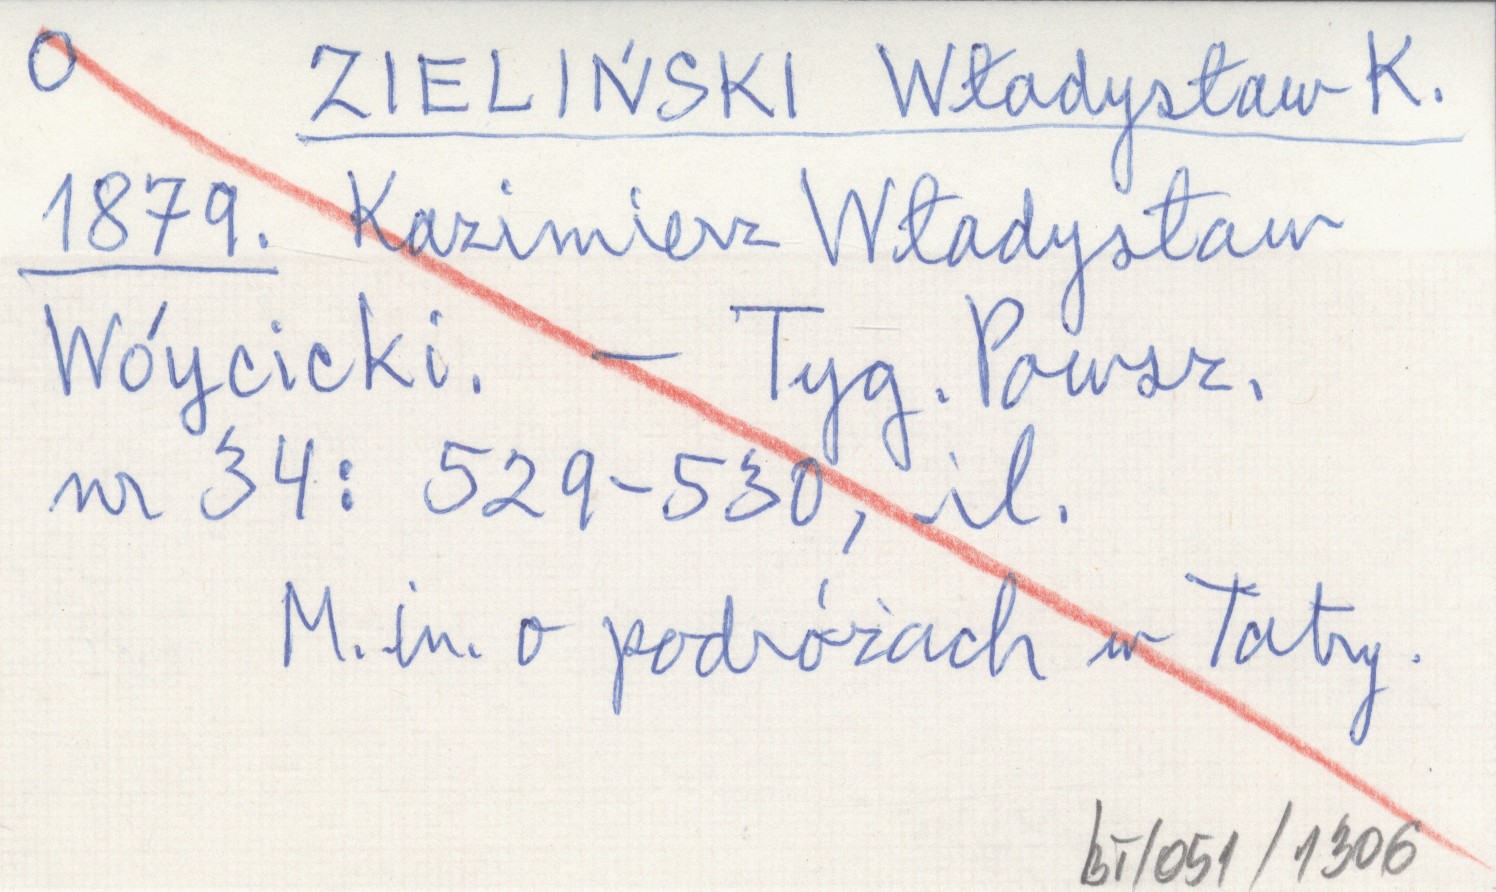 O ZIELIŃSKI Władysław K.
1879. Kazimierz Władysław
Wóycicki. — Tyg. Powsz.
nr 34: 529-530, il.
M. in. o podróżach w Tatry.
/051/1306